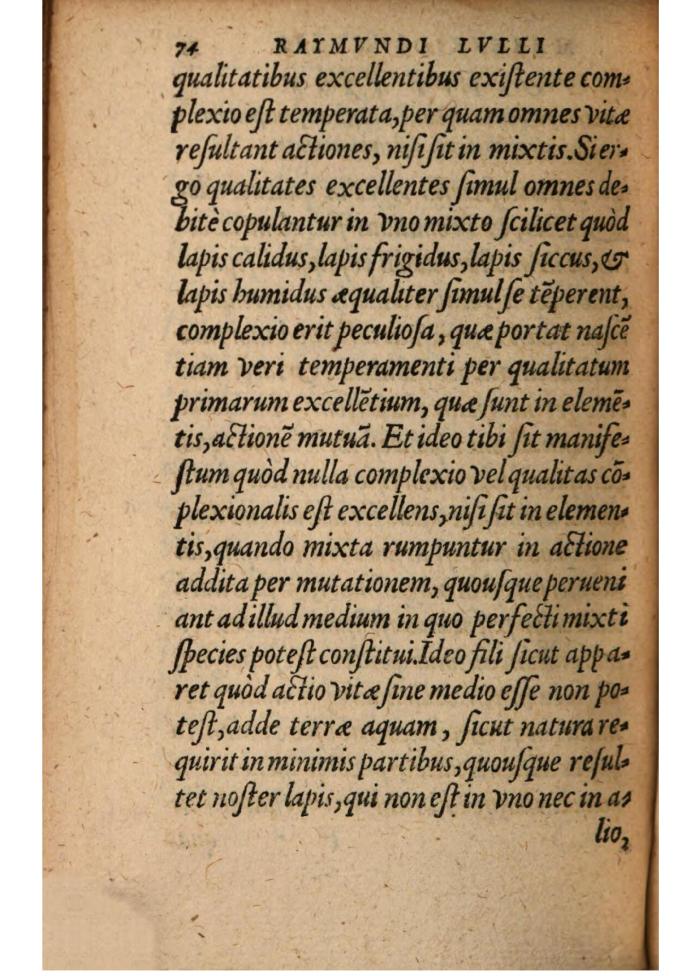 74 RAYMVNDI LVLLI
qualitatibus excellentibus exiſtente com-
plexio eſt temperata, per quam omnes vitæ
reſultant actiones, niſi ſit in mixtis. Si er-
go qualitates excellentes ſimul omnes de-
bitè copulantur in vno mixto ſcilicet quòd
lapis calidus, lapis frigidus, lapis ſiccus, &
lapis humidus æqualiter ſimul ſe tēperent,
complexio erit peculioſa, quæ portat naſcē
tiam veri temperamenti per qualitatum
primarum excellētium, quæ ſunt in elemē-
tis, actionē mutuā. Et ideo tibi ſit manife-
ſtum quòd nulla complexio vel qualitas cō-
plexionalis eſt excellens, niſi ſit in elemen-
tis, quando mixta rumpuntur in actione
addita per mutationem, quouſque perueni
ant ad illud medium in quo perfecti mixti
ſpecies poteſt conſtitui. Ideo fili ſicut appa-
ret quòd actio vitæ ſine medio eſſe non po-
teſt, adde terræ aquam, ſicut natura re-
quirit in minimis partibus, quouſque reſul-
tet noſter lapis, qui non eſt in vno nec in a-
lio,